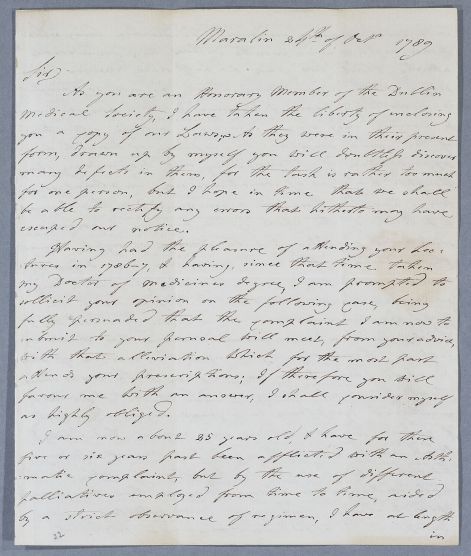 Maralin 24th of Octr 1789
Sir
As you are an Honorary Member of the Dublin
Medical Society, I have taken the liberty of inclosing
you a copy of our Laws, As they were in their present
form, drawn up by myself you will doubtless discover
many defects in them, for the task is rather too much
for one person, but I hope in time that we shall
be able to rectify any errors that hitherto may have
escaped our notice.
Having had the pleasure of attending your Lec-
tures in 1786-7, & having, since that time taken
my Doctor of Medicines degree, I am prompted to
sollicit your opinion on the following case, being
fully persuaded that the complaint I am now to
submit to your perusal will meet, from your advice,
with that alleviation which for the most part
attends your prescriptions; If therefore you will
favour me with an answer, I shall consider myself
as highly obliged.
I am now about 25 years old, & have for these
five or six years past been afflicted with an Asth-
matic complaint, but by the use of different
palliatives employed from time to time, aided
by a strict observance of regimen, I have at length
in
22